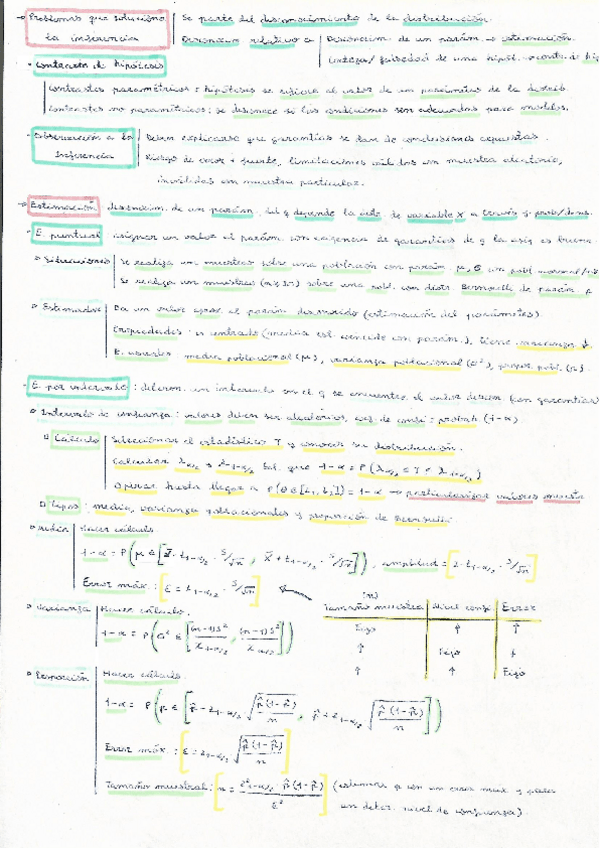 Problemas que soluciona la inferencia | Se parte del desconocimiento de la distribución.
Desconocim relativo a | Desconocim. de un parám. → estimación.
certeza/falsedad de una hipót. → contr. de hip
Contraste de hipótesis
Contrastes paramétricos: hipótesis se refiere al valor de un parámetro de la distrib.
Contrastes no paramétricos: se desconoce si las condiciones son adecuadas para modelos.
Observación a la Inferencia | Deben explicarse que garantías se dan de conclusiones expuestas.
Riesgo de error + fuente, limitaciones válidas en muestra aleatoria,
inválidas en muestra particular.
Estimación: desconocim. de un parám. del q depende la de variable X a través
E. puntual: asignar un valor al parám. con exigencia de garantías de q la asig es buena.
Situaciones | Se realiza un muestreo sobre una población con parám. μ, θ en pobl. normal
Se realiza un muestreo (n≥30) sobre una pobl. con distr. Bernoulli de parám. p
Estimador | Da un valor aprox. al parám. desconocido (estimación del parámetro)
Propiedades: centrado (media est. coincide con parám.), tiene varianza ↓.
E. usuales: media poblacional (μ), varianza poblacional (σ²), propor. pobl. (p).
E. por intervalo: determ. un intervalo en el q se encuentre el valor descon. (con garantías)
Intervalo de confianza: valores deben ser aleatorios, de confi: probab (1-α)
Cálculo | Seleccionar el estadístico T y conocer su distribución.
Calcular λα/2 y λ1-α/2 tal que 1-α = P(λα/2 ≤ T ≤ λ1-α/2)
Operar hasta llegar a P(θ∈[L₁, L₂]) = 1-α → particularizar valores muestra
Tipos: media, varianza poblacionales y proporción de Bernoulli.
Media | Hacer cálculo
1-α = P(μ ∈ [x̄ - t1-α/2 · S/√n, x̄ + t1-α/2 · S/√n]), amplitud = [2·t1-α/2 · S/√n]
Error máx.: [ε = t1-α/2 · S/√n]
(n)
Tamaño muestral | Nivel conf | Error
Fijo | ↑ | ↑
↑ | Fijo | ↓
↑ | ↑ | Fijo
Varianza | Hacer cálculo.
1-α = P(σ² ∈ [(n-1)S²/χ1-α/2, (n-1)S²/χα/2])
Proporción | Hacer cálculo.
1-α = P(p ∈ [p̂ - z1-α/2 √(p̂(1-p̂)/n), p̂ + z1-α/2 √(p̂(1-p̂)/n)])
Error máx.: [ε = z1-α/2 √(p̂(1-p̂)/n)]
Tamaño muestral: [n = z²1-α/2 p̂(1-p̂)/ε²] (estimamos p con un error máx y para
un deter. nivel de confianza).